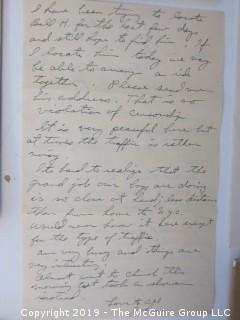 I have been trying to locate
Bill H. for the last few days
and still hope to find him. If
I locate him today we may
be able to arrange a ride
together. Please send me
his address. That is no
violation of censorship.
It is very peaceful here but
at times the traffic is rather
noisy.
It's hard to realize that the
grand job our boys are doing
is so close at hand; less distance
than from home to N.Y.C.
Would never know it here except
for the type of traffic.
Am busy and things are
very interesting.
Almost went to church this
morning but took a shower
instead.
Love to all
COPYRIGHT 2019 - The McGuire Group LLC